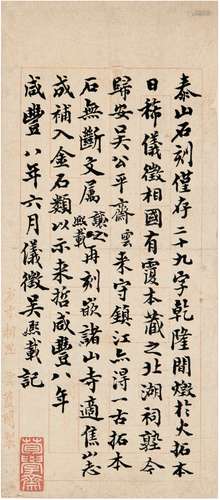 泰山石刻僅存二十九字乾隆間燬於火拓本
日稀儀徵相國有覆本藏之北湖祠塾今
歸安吳公平齋雲來守鎮江亦得一古拓本
石無斷文属讓之熙載再刻嵌諸山寺適焦山志
成補入金石類以示来哲咸豐八年
咸豐八年六月儀徵吳熙載記